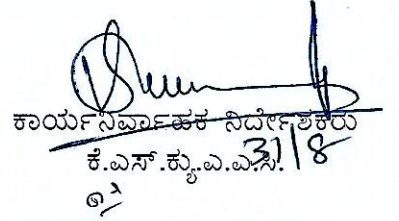 ಕಾರ್ಯನಿರ್ವಾಹಕ ನಿರ್ದೇಶಕರು
ಕೆ.ಎಸ್.ಕ್ಯು.ಎ.ಎ.ಸಿ.
31/8